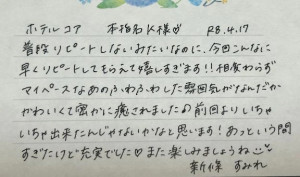 ホテルコア 本指名K様♡ R8.4.17
普段リピートしないみたいなのに、今回こんなに
早くリピートしてもらえて嬉しすぎます!!相変わらず
マイペースなあのふわふわした雰囲気がなんだか
かわいくて密かに癒されました♪前回よりいちゃ
いちゃ出来たんじゃないかなと思います!あっという間
すぎたけど充実でした♡また楽しみましょうね
新條 すみれ